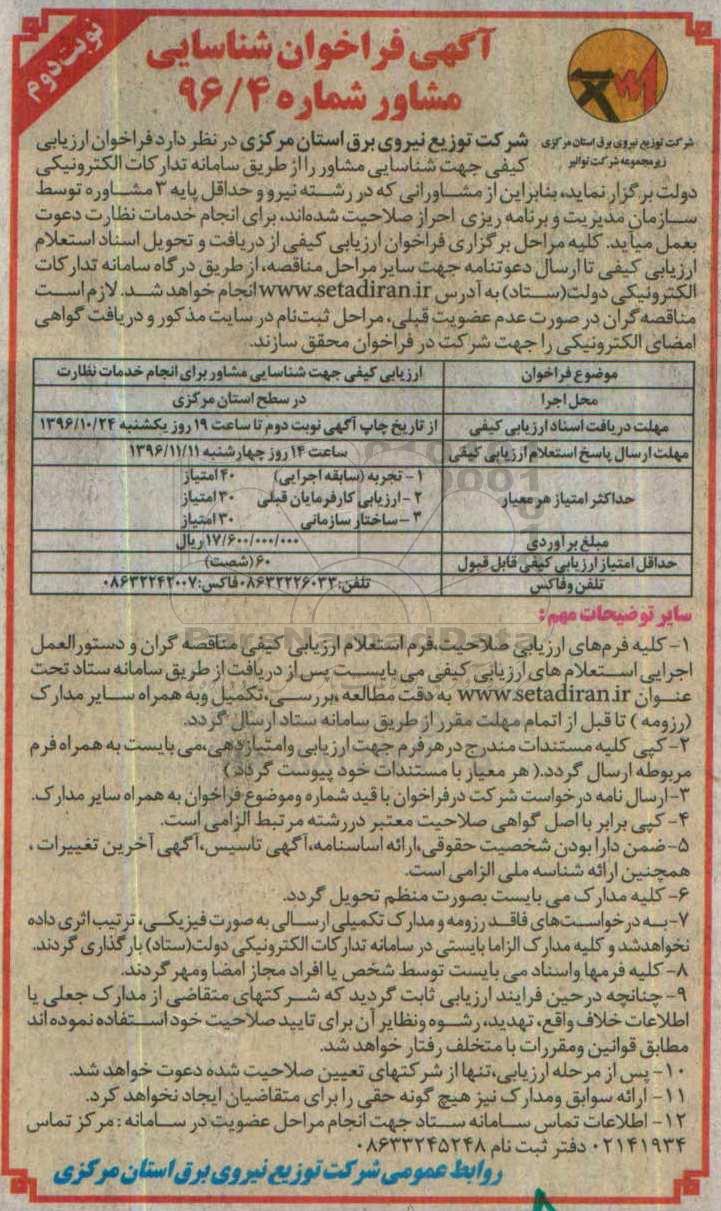 نوبت دوم
آگهی فراخوان شناسایی
مشاور شماره ۹۶/۴
شرکت توزیع نیروی برق استان مرکزی
زیرمجموعه شرکت توانیر
شرکت توزیع نیروی برق استان مرکزی در نظر دارد فراخوان ارزیابی
کیفی جهت شناسایی مشاور را از طریق سامانه تدارکات الکترونیکی
دولت برگزار نماید، بنابراین از مشاورانی که در رشته نیرو و حداقل پایه ۳ مشاوره توسط
سازمان مدیریت و برنامه ریزی احراز صلاحیت شده‌اند، برای انجام خدمات نظارت دعوت
بعمل میآید. کلیه مراحل برگزاری فراخوان ارزیابی کیفی از دریافت و تحویل اسناد استعلام
ارزیابی کیفی تا ارسال دعوتنامه جهت سایر مراحل مناقصه، از طریق درگاه سامانه تدارکات
الکترونیکی دولت(ستاد) به آدرس www.setadiran.ir انجام خواهد شد. لازم است
مناقصه گران در صورت عدم عضویت قبلی، مراحل ثبت‌نام در سایت مذکور و دریافت گواهی
امضای الکترونیکی را جهت شرکت در فراخوان محقق سازند.
موضوع فراخوان ارزیابی کیفی جهت شناسایی مشاور برای انجام خدمات نظارت
محل اجرا در سطح استان مرکزی
مهلت دریافت اسناد ارزیابی کیفی از تاریخ چاپ آگهی نوبت دوم تا ساعت ۱۹ روز یکشنبه ۱۳۹۶/۱۰/۲۴
مهلت ارسال پاسخ استعلام ارزیابی کیفی ساعت ۱۴ روز چهارشنبه ۱۳۹۶/۱۱/۱۱
حداکثر امتیاز هر معیار
۱- تجربه (سابقه اجرایی) ۴۰ امتیاز
۲- ارزیابی کارفرمایان قبلی ۳۰ امتیاز
۳- ساختار سازمانی ۳۰ امتیاز
مبلغ برآوردی ۱۷/۶۰۰/۰۰۰/۰۰۰ ریال
حداقل امتیاز ارزیابی کیفی قابل قبول ۶۰ (شصت)
تلفن و فاکس تلفن: ۰۸۶۳۲۲۲۶۰۳۳ فاکس: ۰۸۶۳۲۲۴۲۰۰۷
سایر توضیحات مهم:
ParsNamadData
۱- کلیه فرم‌های ارزیابی صلاحیت، فرم استعلام ارزیابی کیفی مناقصه گران و دستورالعمل
اجرایی استعلام های ارزیابی کیفی می بایست پس از دریافت از طریق سامانه ستاد تحت
عنوان www.setadiran.ir به دقت مطالعه ،بررسی، تکمیل وبه همراه سایر مدارک
(رزومه ) تا قبل از اتمام مهلت مقرر از طریق سامانه ستاد ارسال گردد.
۲- کپی کلیه مستندات مندرج در هر فرم جهت ارزیابی وامتیازدهی، می بایست به همراه فرم
مربوطه ارسال گردد.( هر معیار با مستندات خود پیوست گردد)
۳-ارسال نامه درخواست شرکت در فراخوان با قید شماره وموضوع فراخوان به همراه سایر مدارک.
۴- کپی برابر با اصل گواهی صلاحیت معتبر در رشته مرتبط الزامی است.
۵- ضمن دارا بودن شخصیت حقوقی، ارائه اساسنامه، آگهی تاسیس، آگهی آخرین تغییرات ،
همچنین ارائه شناسه ملی الزامی است.
۶- کلیه مدارک می بایست بصورت منظم تحویل گردد.
۷-به درخواست‌های فاقد رزومه و مدارک تکمیلی ارسالی به صورت فیزیکی، ترتیب اثری داده
نخواهدشد و کلیه مدارک الزاما بایستی در سامانه تدارکات الکترونیکی دولت(ستاد) بارگذاری گردند.
۸- کلیه فرمها واسناد می بایست توسط شخص یا افراد مجاز امضا ومهر گردند.
۹- چنانچه در حین فرایند ارزیابی ثابت گردید که شرکتهای متقاضی از مدارک جعلی یا
اطلاعات خلاف واقع، تهدید، رشوه ونظایر آن برای تایید صلاحیت خود استفاده نموده اند
مطابق قوانین ومقررات با متخلف رفتار خواهد شد.
۱۰- پس از مرحله ارزیابی، تنها از شرکتهای تعیین صلاحیت شده دعوت خواهد شد.
۱۱- ارائه سوابق ومدارک نیز هیچ گونه حقی را برای متقاضیان ایجاد نخواهد کرد.
۱۲- اطلاعات تماس سامانه ستاد جهت انجام مراحل عضویت در سامانه : مرکز تماس
۰۲۱۴۱۹۳۴ دفتر ثبت نام ۰۸۶۳۳۲۴۵۲۴۸
روابط عمومی شرکت توزیع نیروی برق استان مرکزی